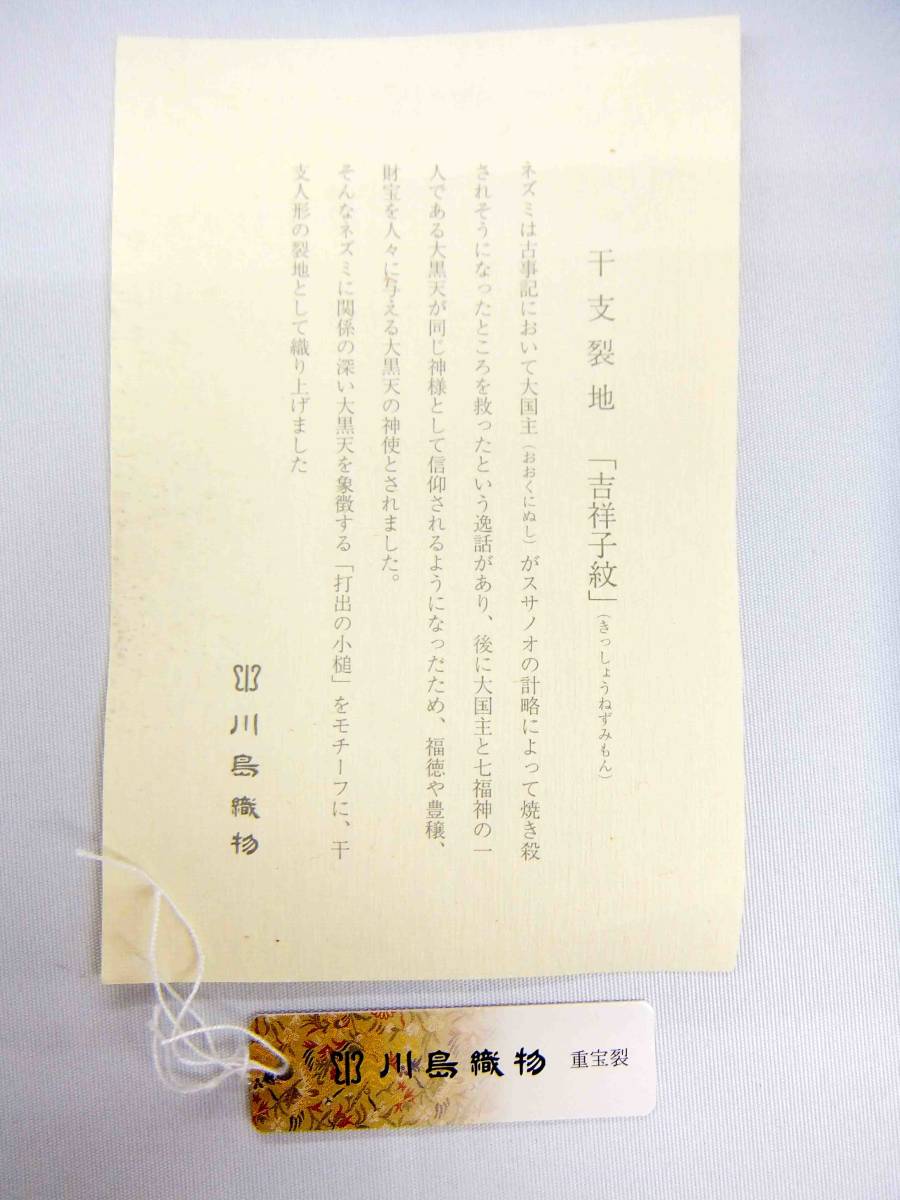 干支裂地　「吉祥子紋」（きっしょうねずみもん）
ネズミは古事記において大国主（おおくにぬし）がスサノオの計略によって焼き殺
されそうになったところを救ったという逸話があり、後に大国主と七福神の一
人である大黒天が同じ神様として信仰されるようになったため、福徳や豊穣、
財宝を人々に与える大黒天の神使とされました。
そんなネズミに関係の深い大黒天を象徴する「打出の小槌」をモチーフに、干
支人形の裂地として織り上げました
川島織物
川島織物 重宝裂